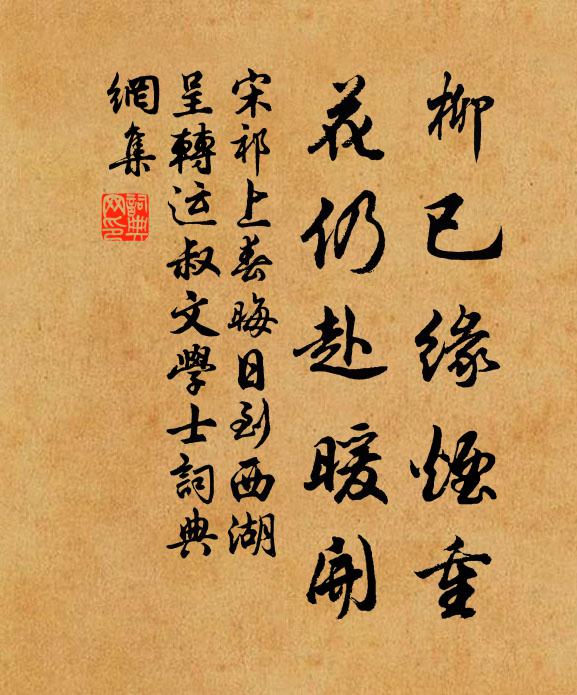 柳已緣煙重
花仍赴暖開
宋祁上春晦日到西湖
呈轉运叔文學士詞典
網集
詞典
网印